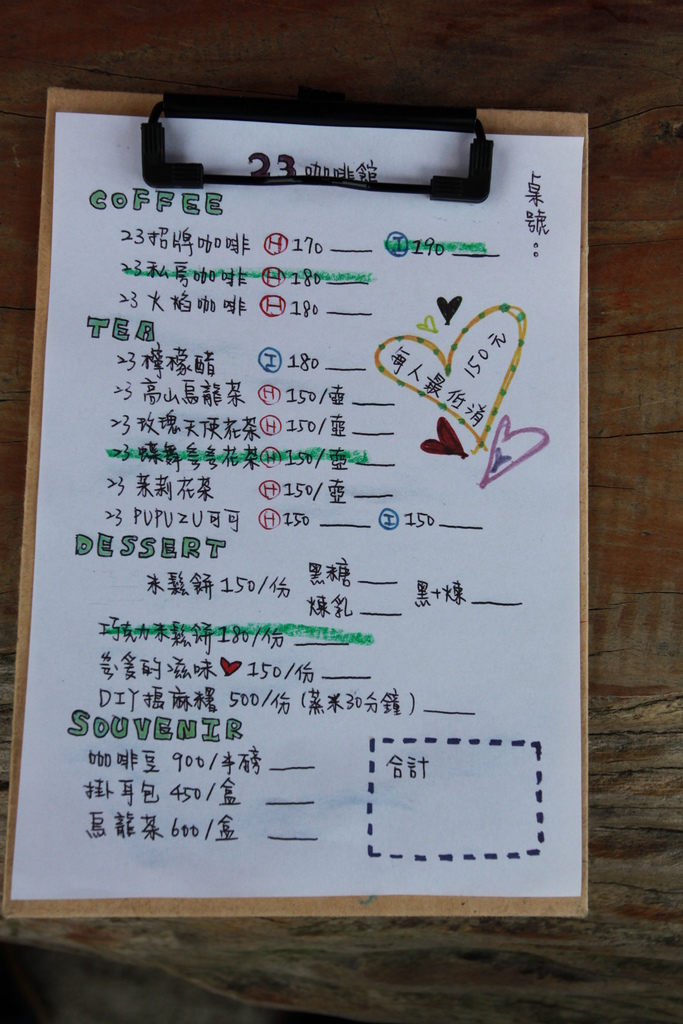 23 咖啡館
桌號：
COFFEE
23 招牌咖啡 Ⓗ 170 ____ Ⓘ 190 ____
23 私房咖啡 Ⓗ 180 ____
23 火焰咖啡 Ⓗ 180 ____
TEA
23 檸檬醋 Ⓘ 180 ____
23 高山烏龍茶 Ⓗ 150/壺 ____
23 玫瑰天使花茶 Ⓗ 150/壺 ____
23 蝶舞花茶 Ⓗ 150/壺 ____
23 茉莉花茶 Ⓗ 150/壺 ____
23 PUPUZU可可 Ⓗ 150 ____ Ⓘ 150 ____
每人最低消 150元
DESSERT
米鬆餅 150/份 黑糖 ____ 黑+煉 ____
煉乳 ____
巧克力米鬆餅 180/份 ____
的滋味 ♥ 150/份 ____
DIY搗麻糬 500/份 (蒸米30分鐘) ____
SOUVENIR
咖啡豆 900/半磅 ____
掛耳包 450/盒 ____
烏龍茶 600/盒 ____
合計